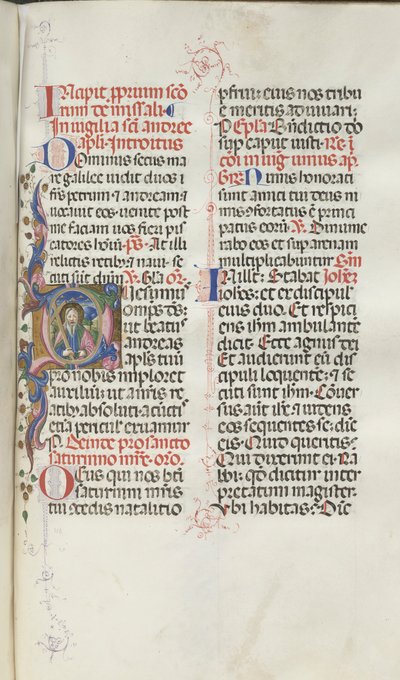 Incipit pprium sco
rum de missali.
In vigilia sci andree
apli. Introitus
Dominus secus ma
re galilee vidit duos
frs petrum & andream &
vocavit eos: venite post
me: faciam vos fieri pis
catores hoim. Ps. At illi
relictis retibus & navi se
cuti sut dnm. V. Gla. Or.
Quesumus
omps ds:
ut beatus
andreas
apls tuus
pro nobis imploret
auxiliu: ut a nris re
atib absoluti: a cuctis
etia periculis eruamur
P. Deinde pro sancto
saturnino mre. oro.
Deus qui nos bti
saturnini mris
tui cedis natalitio
pfrui: eius nos tribu
e meritis adiuvari. P
Epla Bndictio do
sup caput iusti. Re i
coi in vig. unius ap.
Gr. Nimis honorati
sunt amici tui deus ni
mis gfortatus e princi
patus eoru. V. Dinume
rabo eos: et sup arenam
multiplicabuntur.
In illo t. Stabat Johes
iohes: et ex discipul
eius duo. Et respici
ens ihm ambulante
dicit. Ecce agnus dei
Et audierunt eu di
scipuli loquente: & se
cuti sunt ihm. Conver
sus aut ihs: & videns
eos sequentes se: dic
eis. Quid queritis:
Qui dixerunt ei. Ra
bbi: qd dicitur inter
pretatum magister.
Ubi habitas: Dic